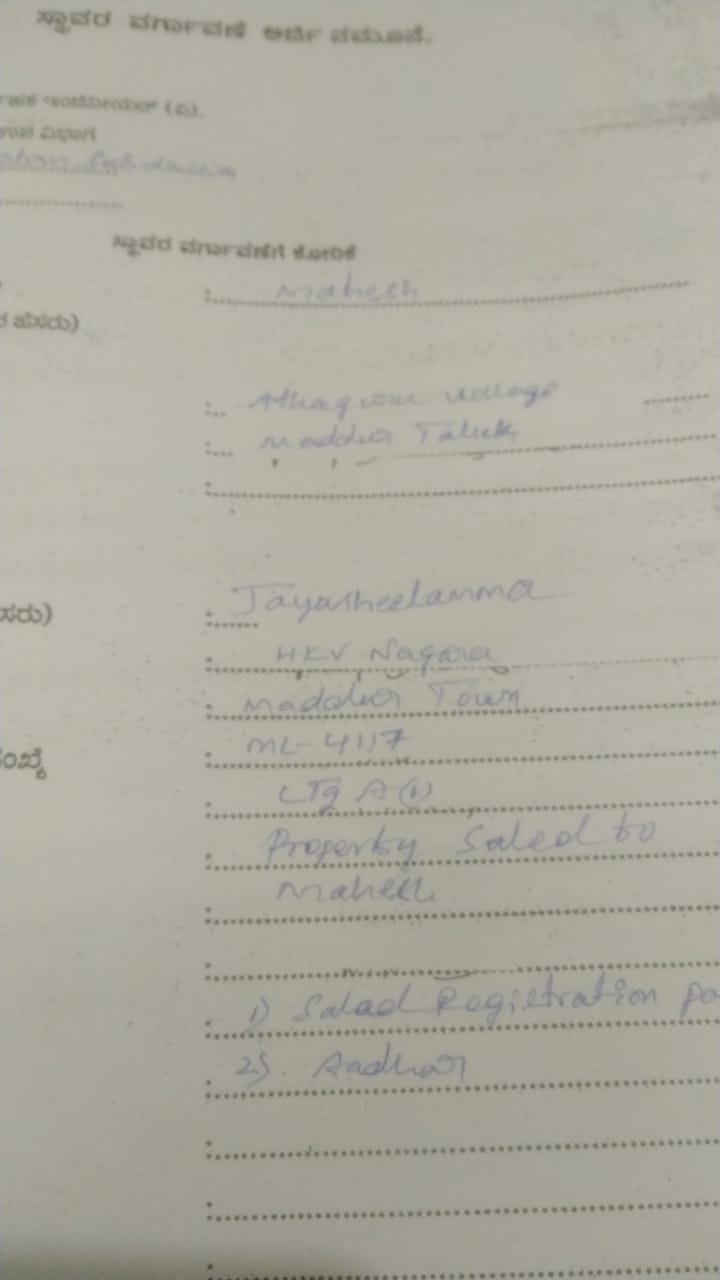 ಸ್ಥಾವರ ವರ್ಗಾವಣೆ ಅರ್ಜಿ ನಮೂನೆ.
(ವಿ).
ಉಪ ವಿಭಾಗ
ಸ್ಥಾವರ ವರ್ಗಾವಣೆಗೆ ಕೋರಿಕೆ
: Mahesh
ಹೆಸರು)
: village
: Maddur Taluk
:
: Jayasheelamma
ಸರು)
: HKV Nagara
: Maddur Town
: ML-4117
ಸಂಖ್ಯೆ
: LTg A(1)
: Property Saled to
: Mahesh
:
: 1) Salad Registration
: 2). Aadhar
:
:
: